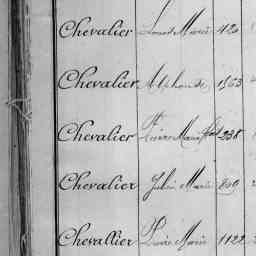 Chevalier Louis Marie 420
Chevalier Alphonse 1563
Chevalier Pierre Marie 238
Chevalier Julien Marie
Chevallier Pierre Marie 1122